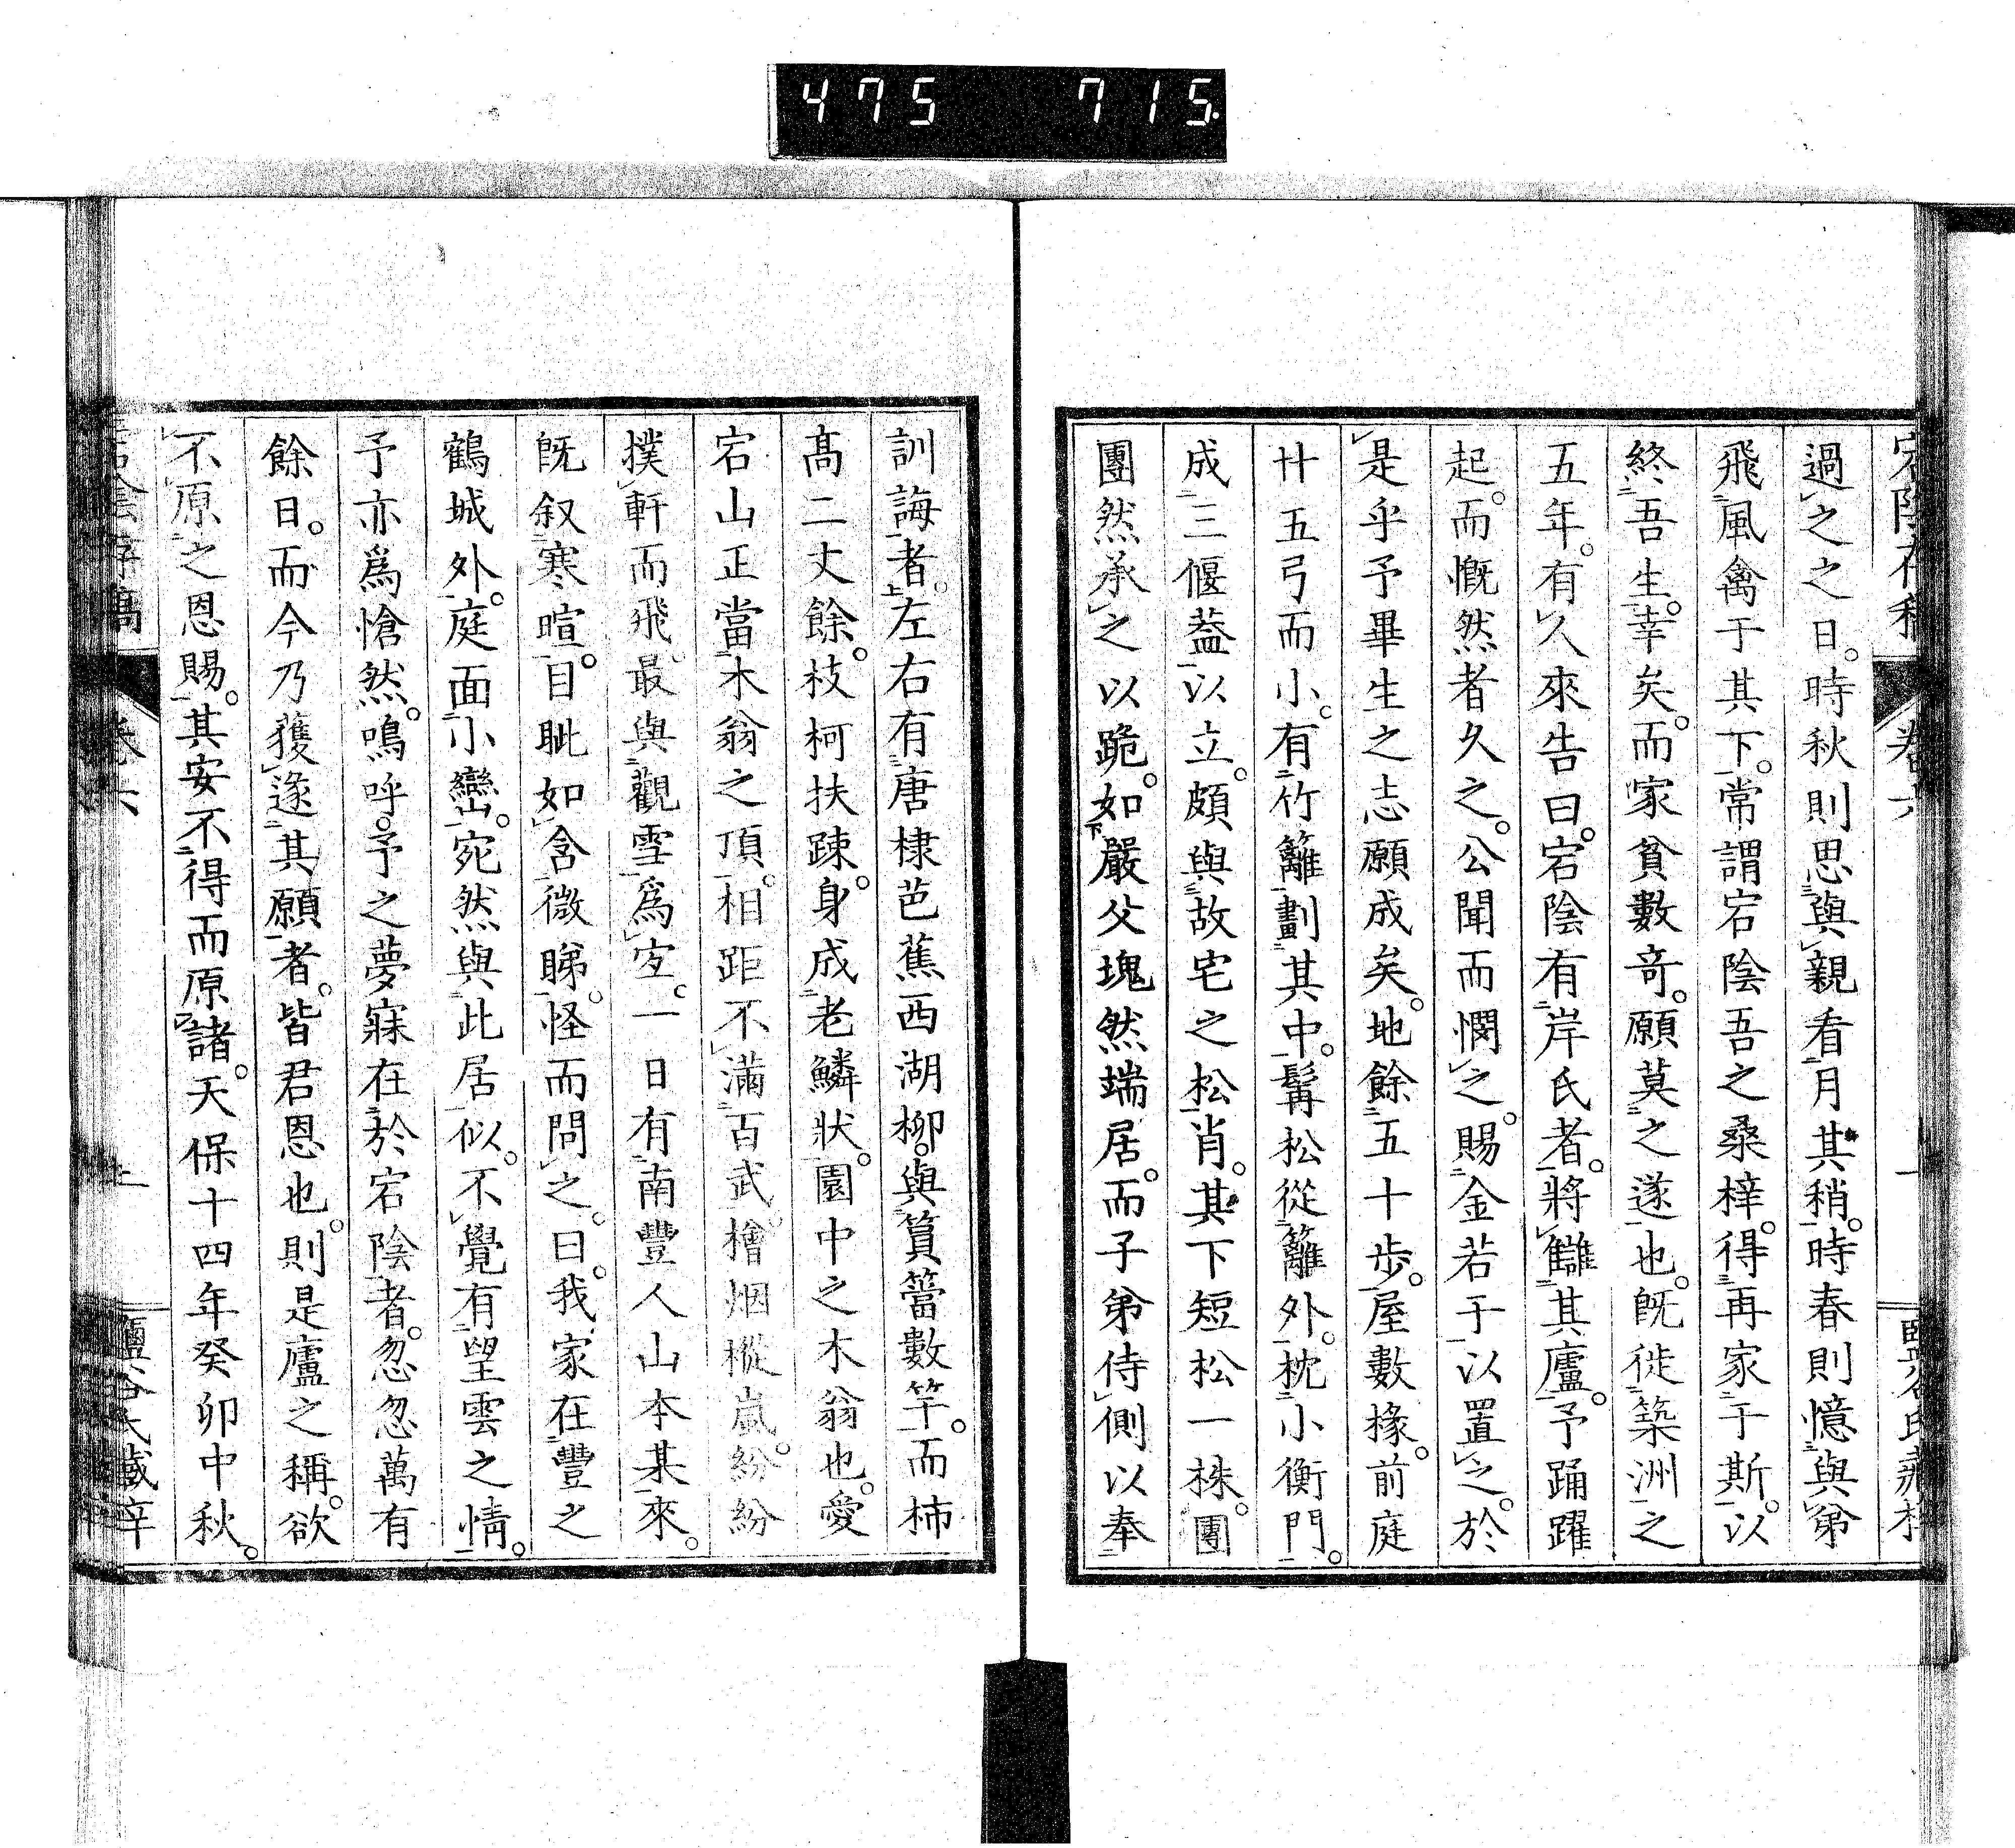 475 715
宕陰存稿 卷六 一 鹽谷氏藏梓
過之之日。時秋則思與親看月其稍。時春則憶與弟
飛風禽于其下。常謂宕陰吾之桑梓。得再家于斯。以
終吾生。幸矣。而家貧數奇。願莫之遂也。既徙築洲之
五年。有人來告曰。宕陰有岸氏者。將讎其廬。予踊躍
起。而慨然者久之。公聞而憫之。賜金若干以置之。於
是乎予畢生之志願成矣。地餘五十步。屋數椽。前庭
廿五弓而小。有竹籬劃其中。髯松從籬外。枕小衡門。
成三偃葢以立。頗與故宅之松肖。其下短松一株。團
團然承之以跪。如嚴父塊然端居。而子弟侍側以奉
訓誨者。左右有唐棣芭蕉西湖柳。與篔簹數竿。而柿
高二丈餘。枝柯扶踈。身成老鱗狀。園中之木翁也。愛
宕山正當木翁之頂。相距不滿百武。檜烟樅嵐。紛紛
撲軒而飛。最與觀雪爲宜。一日有南豐人山本某來。
既叙寒暄。目眦如含微睇。怪而問之。曰。我家在豐之
鶴城外。庭面小巒。宛然與此居似。不覺有望雲之情。
予亦爲愴然。嗚呼。予之夢寐在於宕陰者。忽忽萬有
餘日。而今乃獲遂其願者。皆君恩也。則是廬之稱。欲
不原之恩賜。其安不得而原諸。天保十四年癸卯中秋。
宕陰存稿 卷六 上 鹽谷氏藏梓